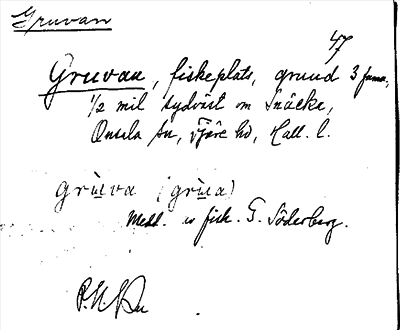 Gruvan
47
Gruvan, fiskeplats, grund 3 famn,
1/2 mil sydväst om Snäcke,
Onsala sn, Fjäre hd, Hall. l.
grùva (grùa)
Medd. av fisk. G. Söderberg.